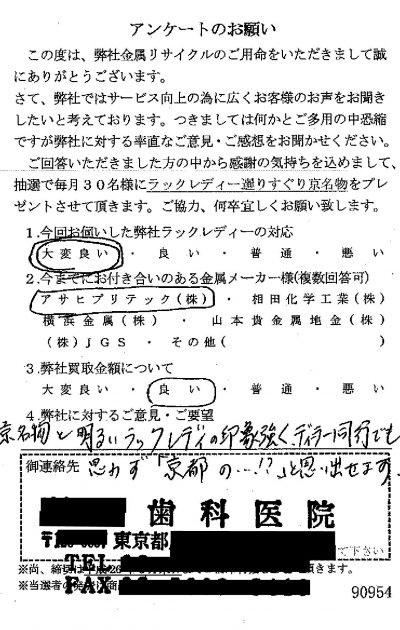 アンケートのお願い
この度は、弊社金属リサイクルのご用命をいただきまして誠
にありがとうございます。
さて、弊社ではサービス向上の為に広くお客様のお声をお聞き
したいと考えております。つきましては何かとご多用の中恐縮
ですが弊社に対する率直なご意見・ご感想をお聞かせください。
ご回答いただきました方の中から感謝の気持ちを込めまして、
抽選で毎月30名様にラックレディー選りすぐり京名物をプレ
ゼントさせて頂きます。ご協力、何卒宜しくお願い致します。
1.今回お伺いした弊社ラックレディーの対応
大変良い・良い・普通・悪い
2.今までにお付き合いのある金属メーカー様(複数回答可)
アサヒプリテック(株)・相田化学工業(株)
横浜金属(株)・山本貴金属地金(株)
(株)JGS・その他( )
3.弊社買取金額について
大変良い・良い・普通・悪い
4.弊社に対するご意見・ご要望
京名物と明るいラックレディの印象強く、ディーラー同行でも
御連絡先 思わず「京都の…!?」と思い出せます。
歯科医院
〒 東京都
て下さい
TEL
※尚、締切は平成26 頂きます。
FAX
※当選者の発
90954